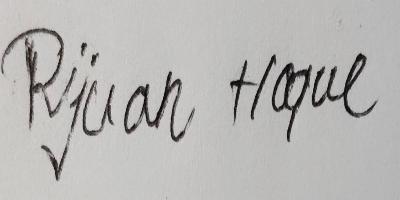 Rijuan Haque